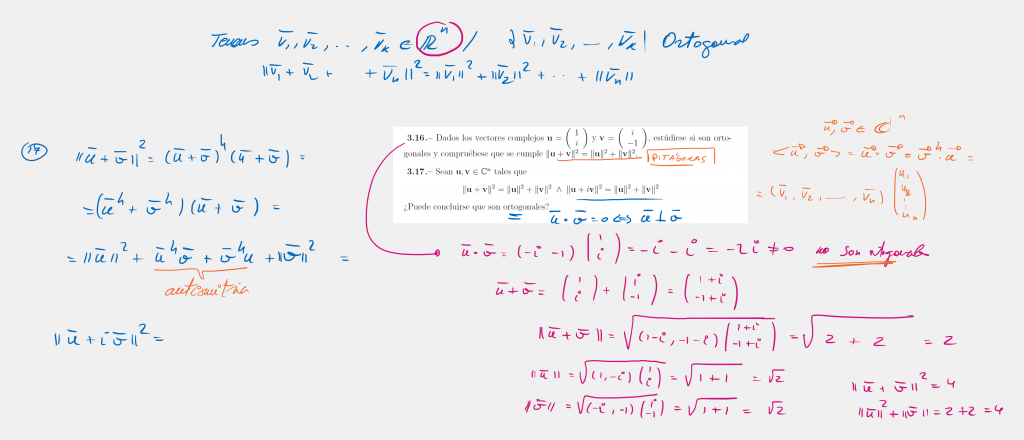 Tenemos v̄₁, v̄₂, ..., v̄ₖ ∈ ℝⁿ / {v̄₁, v̄₂, —, v̄ₖ} Ortogonal
||v̄₁ + v̄₂ + + v̄ₙ||² = ||v̄₁||² + ||v̄₂||² + ... + ||v̄ₙ||
17
||ū + v̄||² = (ū + v̄)ᴴ (ū + v̄) =
= (ūᴴ + v̄ᴴ) (ū + v̄) =
= ||ū||² + ūᴴv̄ + v̄ᴴu + ||v̄||² =
antisimetría
||ū + i v̄||² =
3.16.– Dados los vectores complejos u = (1 i) y v = (i −1), estúdiese si son orto-
gonales y compruébese que se cumple ||u + v||² = ||u||² + ||v||².
PITÁGORAS
3.17.– Sean u, v ∈ ℂⁿ tales que
||u + v||² = ||u||² + ||v||² ∧ ||u + iv||² = ||u||² + ||v||²
¿Puede concluirse que son ortogonales?
= ū · v̄ = 0 ⇔ ū ⊥ v̄
u⃗, v⃗ ∈ ℂⁿ
<u⃗, v⃗> = u⃗ · v⃗ = v⃗ᴴ u⃗ =
= (v̄₁, v̄₂, —, v̄ₙ) (u₁ u₂ ⋮ uₙ)
ū · v̄ = (-i -1) (1 i) = -i - i = -2i ≠ 0 no son ortogonales
ū + v̄ = (1 i) + (i -1) = (1+i -1+i)
||ū + v̄|| = √(1-i, -1-i) (1+i -1+i) = √2 + 2 = 2
||ū|| = √(1, -i) (1 i) = √1+1 = √2
||v̄|| = √(-i, -1) (i -1) = √1+1 = √2
||ū + v̄||² = 4
||ū||² + ||v̄|| = 2+2 = 4